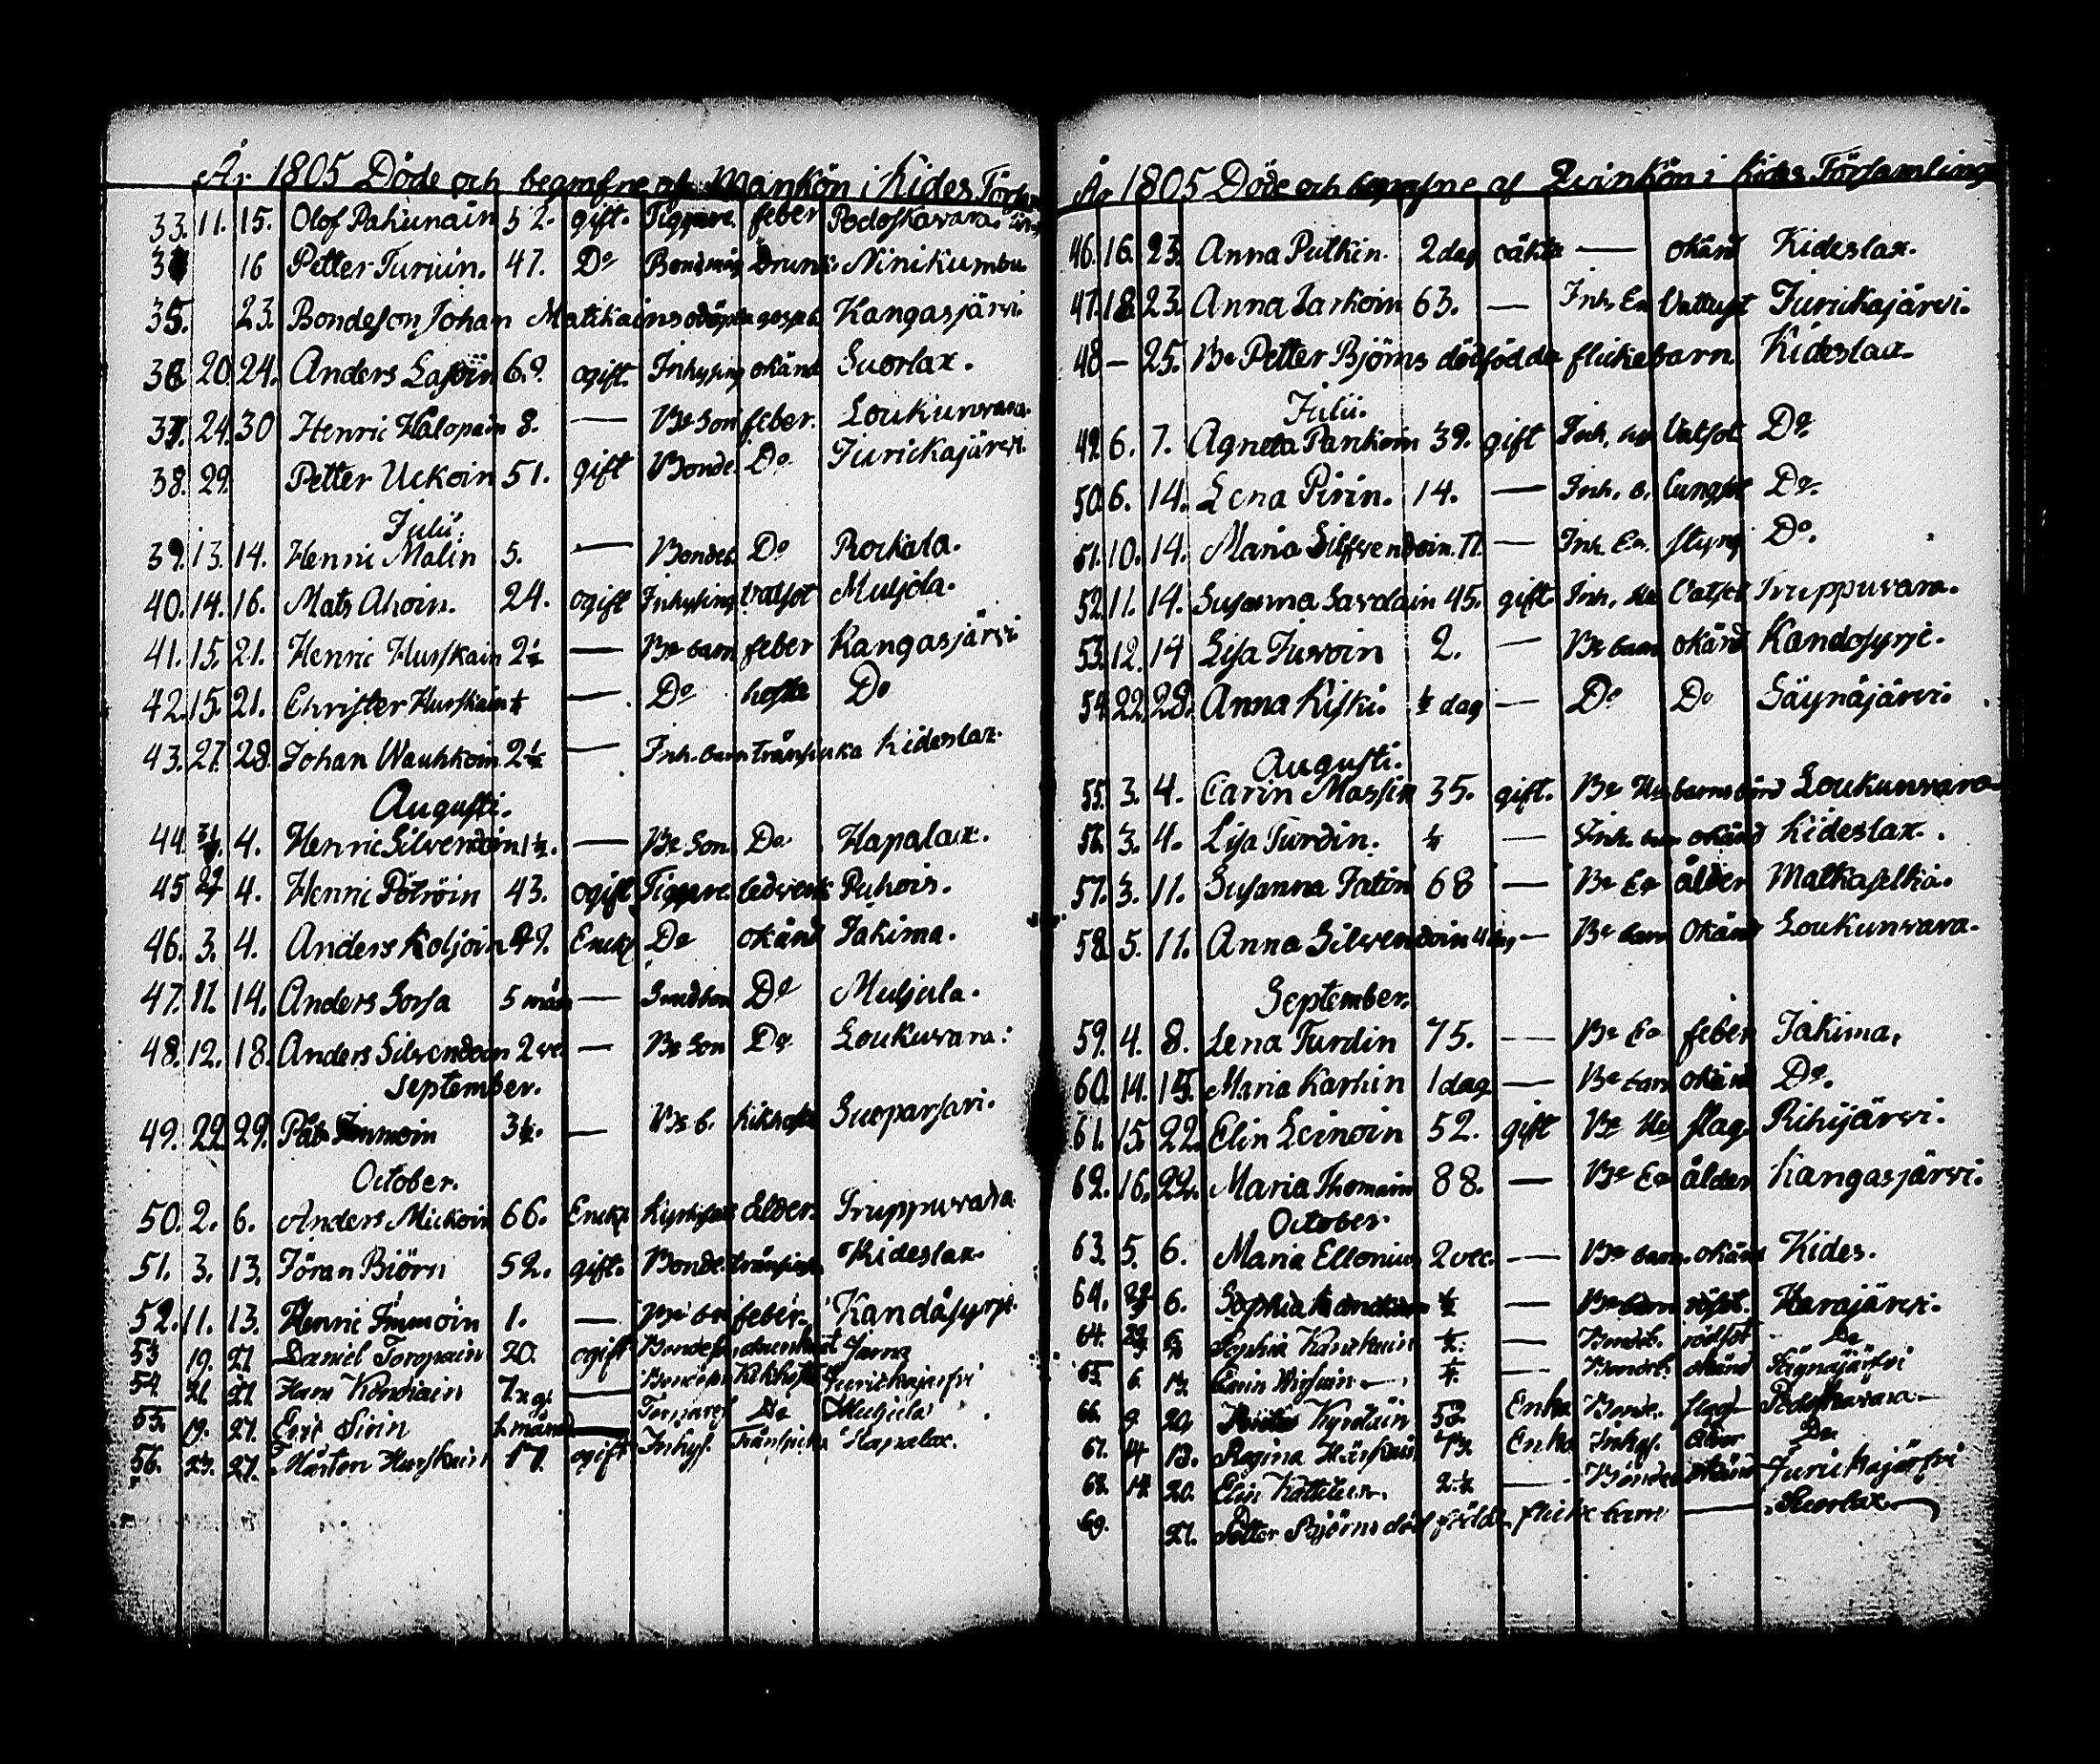 År 1805 Döde och begrafne af Mankön i Kides Förs
33. 11. 15. Olof Pakunain 52. gift. Tiggare. feber Podoskavara.
34 16 Petter Turuin. 47. Do Drunk. Ninikumbu
35. 23. Bondeson Johan Matikains Kangasjärvi.
36 20 24. Anders Lasoin 69. ogift. Inhysing okänd Suorlax.
37. 24. 30 Henric Halopain 8. — Be Son feber. Loukunvara.
38. 29. Petter Uckoin 51. gift Bonde. Do Jurickajärvi.
Julii.
39. 13. 14. Henric Malin 5. — Bondes. Do Rockala.
40. 14. 16. Mats Ahoin. 24. ogift Inhysing vatsot Muljola.
41. 15. 21. Henric Hurskain 2½ — Be barn feber Kangasjärvi
42. 15. 21. Christer Hurskain ½ — Do hosta Do
43. 27. 28. Johan Wauhkoin 2½ — Inh. barn trånsjuka Kideslax.
Augusti.
44. 4. Henric Silvendoin 1½. — Be Son Do Hapalax.
45 4. Henric Pötröin 43. ogift Tiggare. Ledverk Puhois.
46. 3. 4. Anders Koljoin 49. Enckl Do okänd Jakima.
47. 11. 14. Anders Sorsa 5 mån — Do Muljula.
48. 12. 18. Anders Silvendoin 2 ve. — Be Son Do Loukuvara.
September.
49. 22. 29. Påhl Immoin 3½. — Be b. kikhosta Suoparsari.
October.
50. 2. 6. Anders Mickoin 66. Enckl. ålder. Truppuvara
51. 3. 13. Jöran Biörn 52. gift. Bonde. trånsjuka Kideslax.
52. 11. 13. Henric Immoin 1. — feber. Kandåsyrje.
53 19. 27 Daniel Toropain 20. ogift Bondeson drunknat Jama
54. 21. 27. Hans Kondiain — Kikhosta Jurickajärfvi
55. 19. 27. Eric Sirin månad — Torpares Do Muljula
56. 23. 27. Mårten Hurskain 17. ogift Inhys. Trånsjuka Hapalax.
År 1805 Döde och begrafne af Qvinkön i Kides Församling
46. 16. 23. Anna Putkin. 2 dag oäkta — okänd Kideslax.
47. 18. 23. Anna Jarkoin 63. — Inh. En Vattusot Jurickajärvi.
48 — 25. Be Petter Björns dödfödda flickebarn. Kideslax.
Julii.
49. 6. 7. Agneta Pankoin 39. gift Inh. hu Vatsot Do
50. 6. 14. Lena Pirin. 14. — Inh. b. lungsot Do.
51. 10. 14. Maria Silfvendoin. 71. — Inh. En. styng Do.
52. 11. 14. Susanna Savolain 45. gift. Inh. hu Vatsot Truppuvara.
53. 12. 14 Lisa Juvoin 2. — Be barn okänd Kandosyrje.
54. 22. 28. Anna Kiski. ½ dag — Do Do Säynäjärvi.
Augusti.
55. 3. 4. Carin Massin 35. gift. Be Hu barnsbörd Loukunvara
56. 3. 4. Lisa Turdin. ½ — Inh. barn okänd Kideslax.
57. 3. 11. Susanna Jatin 68 — Be Ea ålder Matkaselkä.
58. 5. 11. Anna Silvendoin 4 dag — Be barn Okänd Loukunvara.
September.
59. 4. 8. Lena Turdin 75. — Be Ea feber Jakima.
60. 14. 15. Maria Karhin 1 dag — Be barn okänd Do.
61. 15. 22. Elin Leinoin 52. gift Be Hu slag. Rihijärvi.
62. 16. 22. Maria Thomain 88. — Be Ea ålder Kangasjärvi.
October.
63. 5. 6. Maria Ellonius 2 vec. — Be barn. okänd Kides.
64. 6. Sophia ½ — Be barn rödsot. Harajärvi.
64. 29. 6. Sophia Kanckuin ½. — Bondeb. rödsot Do
65. 6. 13. Carin — ½. — Bondeb. okänd Säynäjärfvi
66. 9. 20. Kyröläin 53. Enka Bonde. slag Podoskavara
67. 14 13. Regina Enka Inhys. ålder Do
68. 14. 20. Elin 2½ — Bondeb okänd Jurickajärfvi
69. 27. Petter Björns dödfödda flicke barn — Suorlax